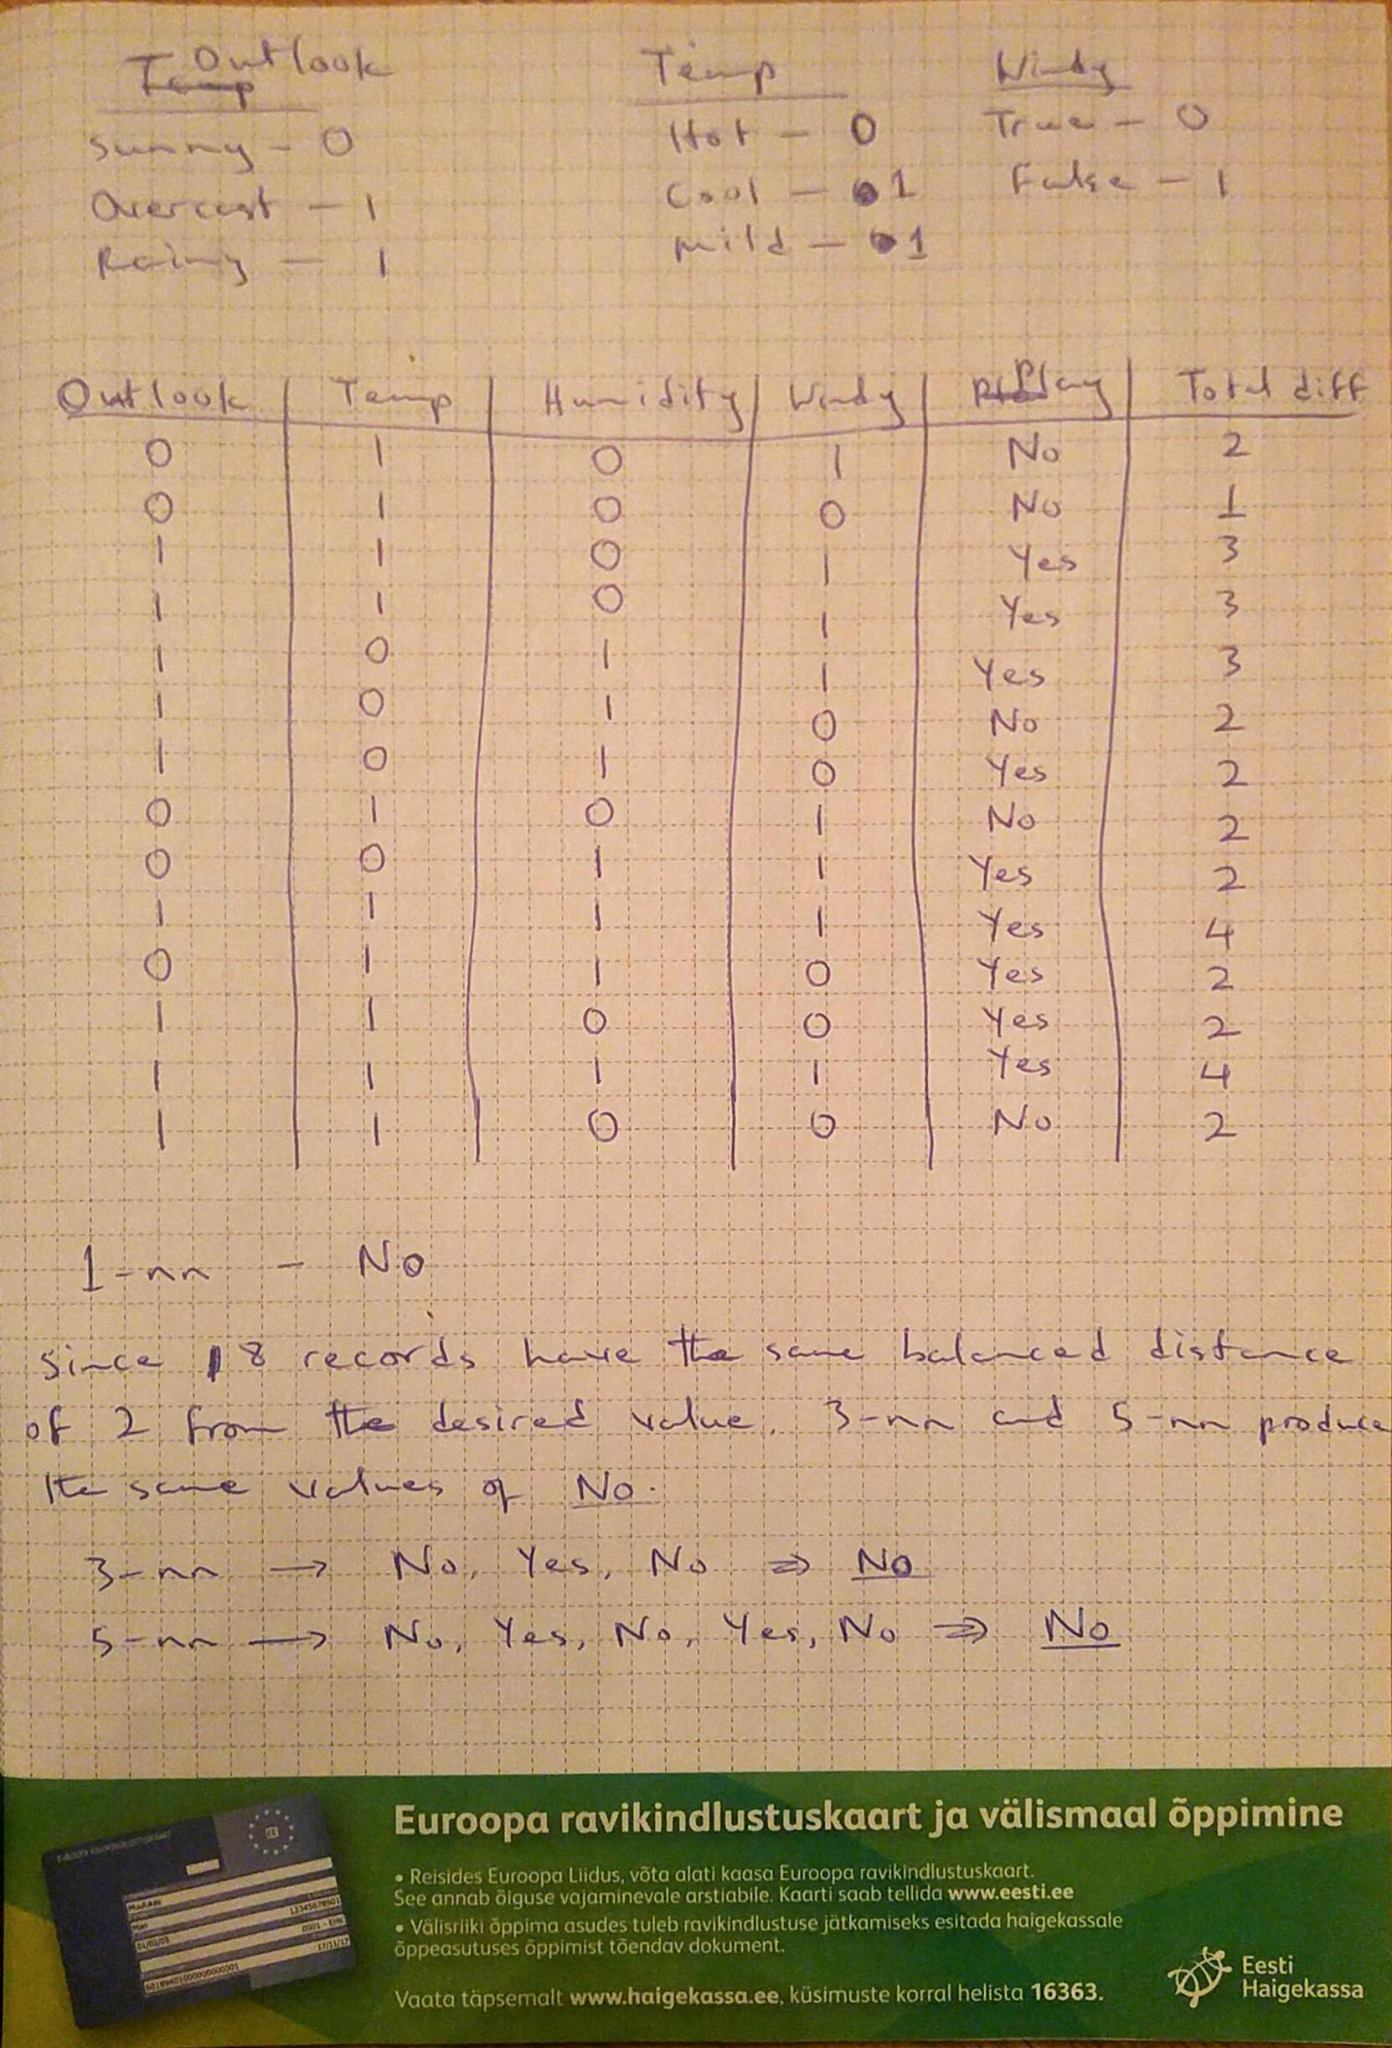 Temp Outlook
Sunny - 0
Overcast - 1
Rainy - 1
Temp
Hot - 0
Cool - 1
Mild - 1
Windy
True - 0
False - 1
Outlook Temp Humidity Windy Play Total diff
0 1 0 1 No 2
0 1 0 0 No 1
1 1 0 1 Yes 3
1 1 0 1 Yes 3
1 0 1 1 Yes 3
1 0 1 0 No 2
1 0 1 0 Yes 2
0 1 0 1 No 2
0 0 1 1 Yes 2
1 1 1 1 Yes 4
0 1 1 0 Yes 2
1 1 0 0 Yes 2
1 1 1 1 Yes 4
1 1 0 0 No 2
1-nn - No
since 8 records have the same balanced distance
of 2 from the desired value. 3-nn and 5-nn produce
the same values of No.
3-nn → No, Yes, No ⇒ No
5-nn → No, Yes, No, Yes, No ⇒ No
Euroopa ravikindlustuskaart ja välismaal õppimine
• Reisides Euroopa Liidus, võta alati kaasa Euroopa ravikindlustuskaart.
See annab õiguse vajaminevale arstiabile. Kaarti saab tellida www.eesti.ee
• Välisriiki õppima asudes tuleb ravikindlustuse jätkamiseks esitada haigekassale
õppeasutuses õppimist tõendav dokument.
Vaata täpsemalt www.haigekassa.ee, küsimuste korral helista 16363.
Eesti
Haigekassa